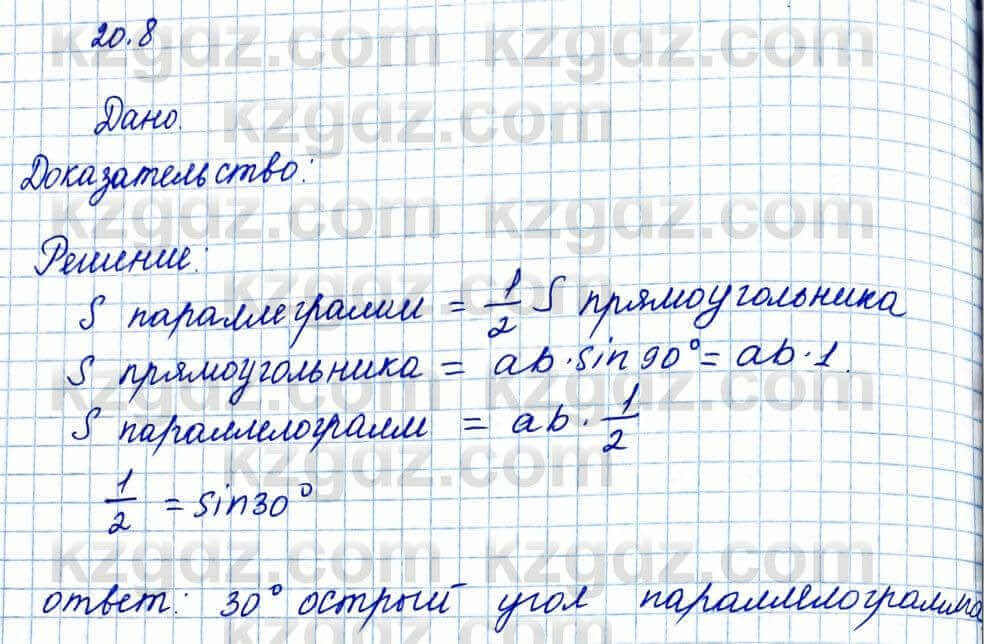 20.8
Дано.
Доказательство:
Решение:
S параллеграмм = 1/2 S прямоугольника
S прямоугольника = ab · sin 90° = ab · 1.
S параллелограмм = ab · 1/2
1/2 = sin 30°
ответ: 30° острый угол параллелограмма
kzgdz.com kzgdz.com
kzgdz.com
kzgdz.com kzgdz.com
kzgdz.com
kzgdz.com kzgdz.com
kzgdz.com
kzgdz.com kzgdz.com
kzgdz.com